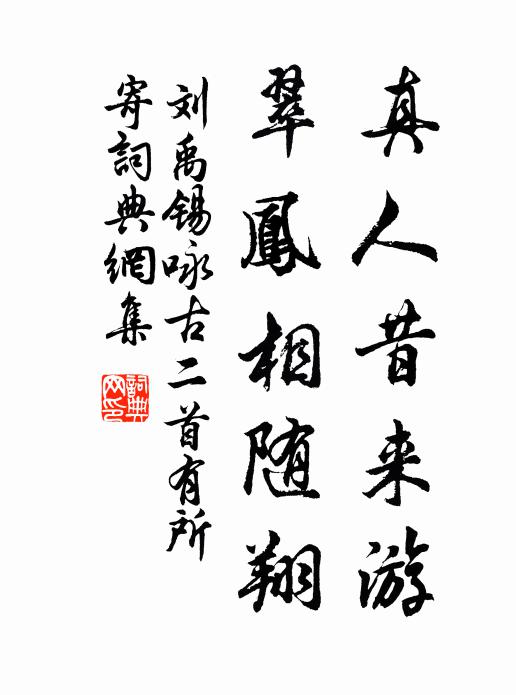 真人昔来游
翠鳳相随翔
刘禹锡咏古二首有所
寄詞典網集
詞典
网印